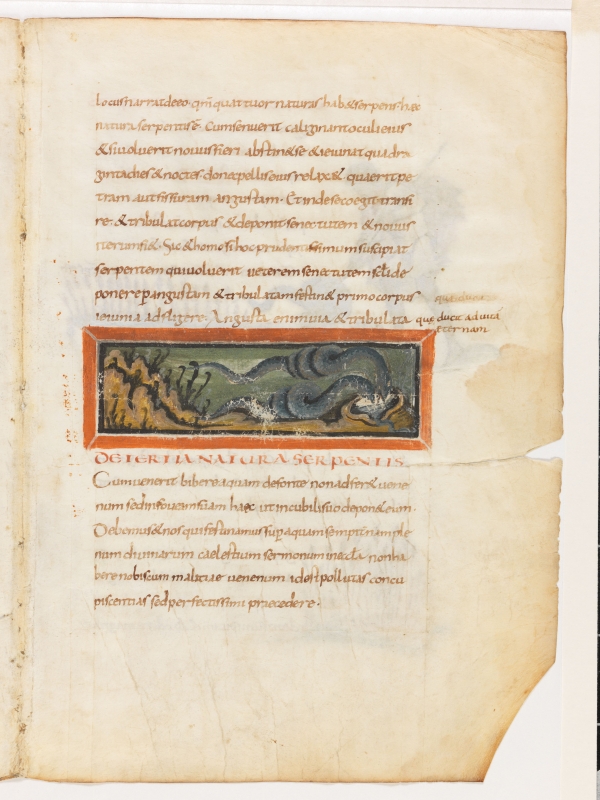 locus narrat de eo · qm̄ quattuor naturas hab& serpens · haec
natura serpentis ē. Cum senuerit caliginant oculi eius
& si voluerit novus fieri abstin& se & ieiunat quadra
ginta dies & noctes · donec pellis eius relax& quaerit pe
tram aut fissuram angustam · Et inde se coegit transi
re · & tribulat corpus & deponit senectutem & novus
iterum fi& · Sic & homo si hoc prudentissimum suscipiat
serpentem qui voluerit veterem senectutem scłi de
ponere p angustam & tribulatam festin& primo corpus
ieiunia adfligere · Angusta enim via & tribulata
que ducit ad vitā
eternam
DE TERTIA NATURA SERPENTIS
Cum venerit bibere aquam de fonte non adfer& vene
num sed in foveam suam haec ut in cubili suo depon& eum ·
Debemus & nos qui festinamus sup aquam sempiternam ple
nam divinarum caelestium sermonum in eccła non ha
bere nobiscum malitiae venenum id est pollutas concu
piscentias sed perfectissimi praecedere ·